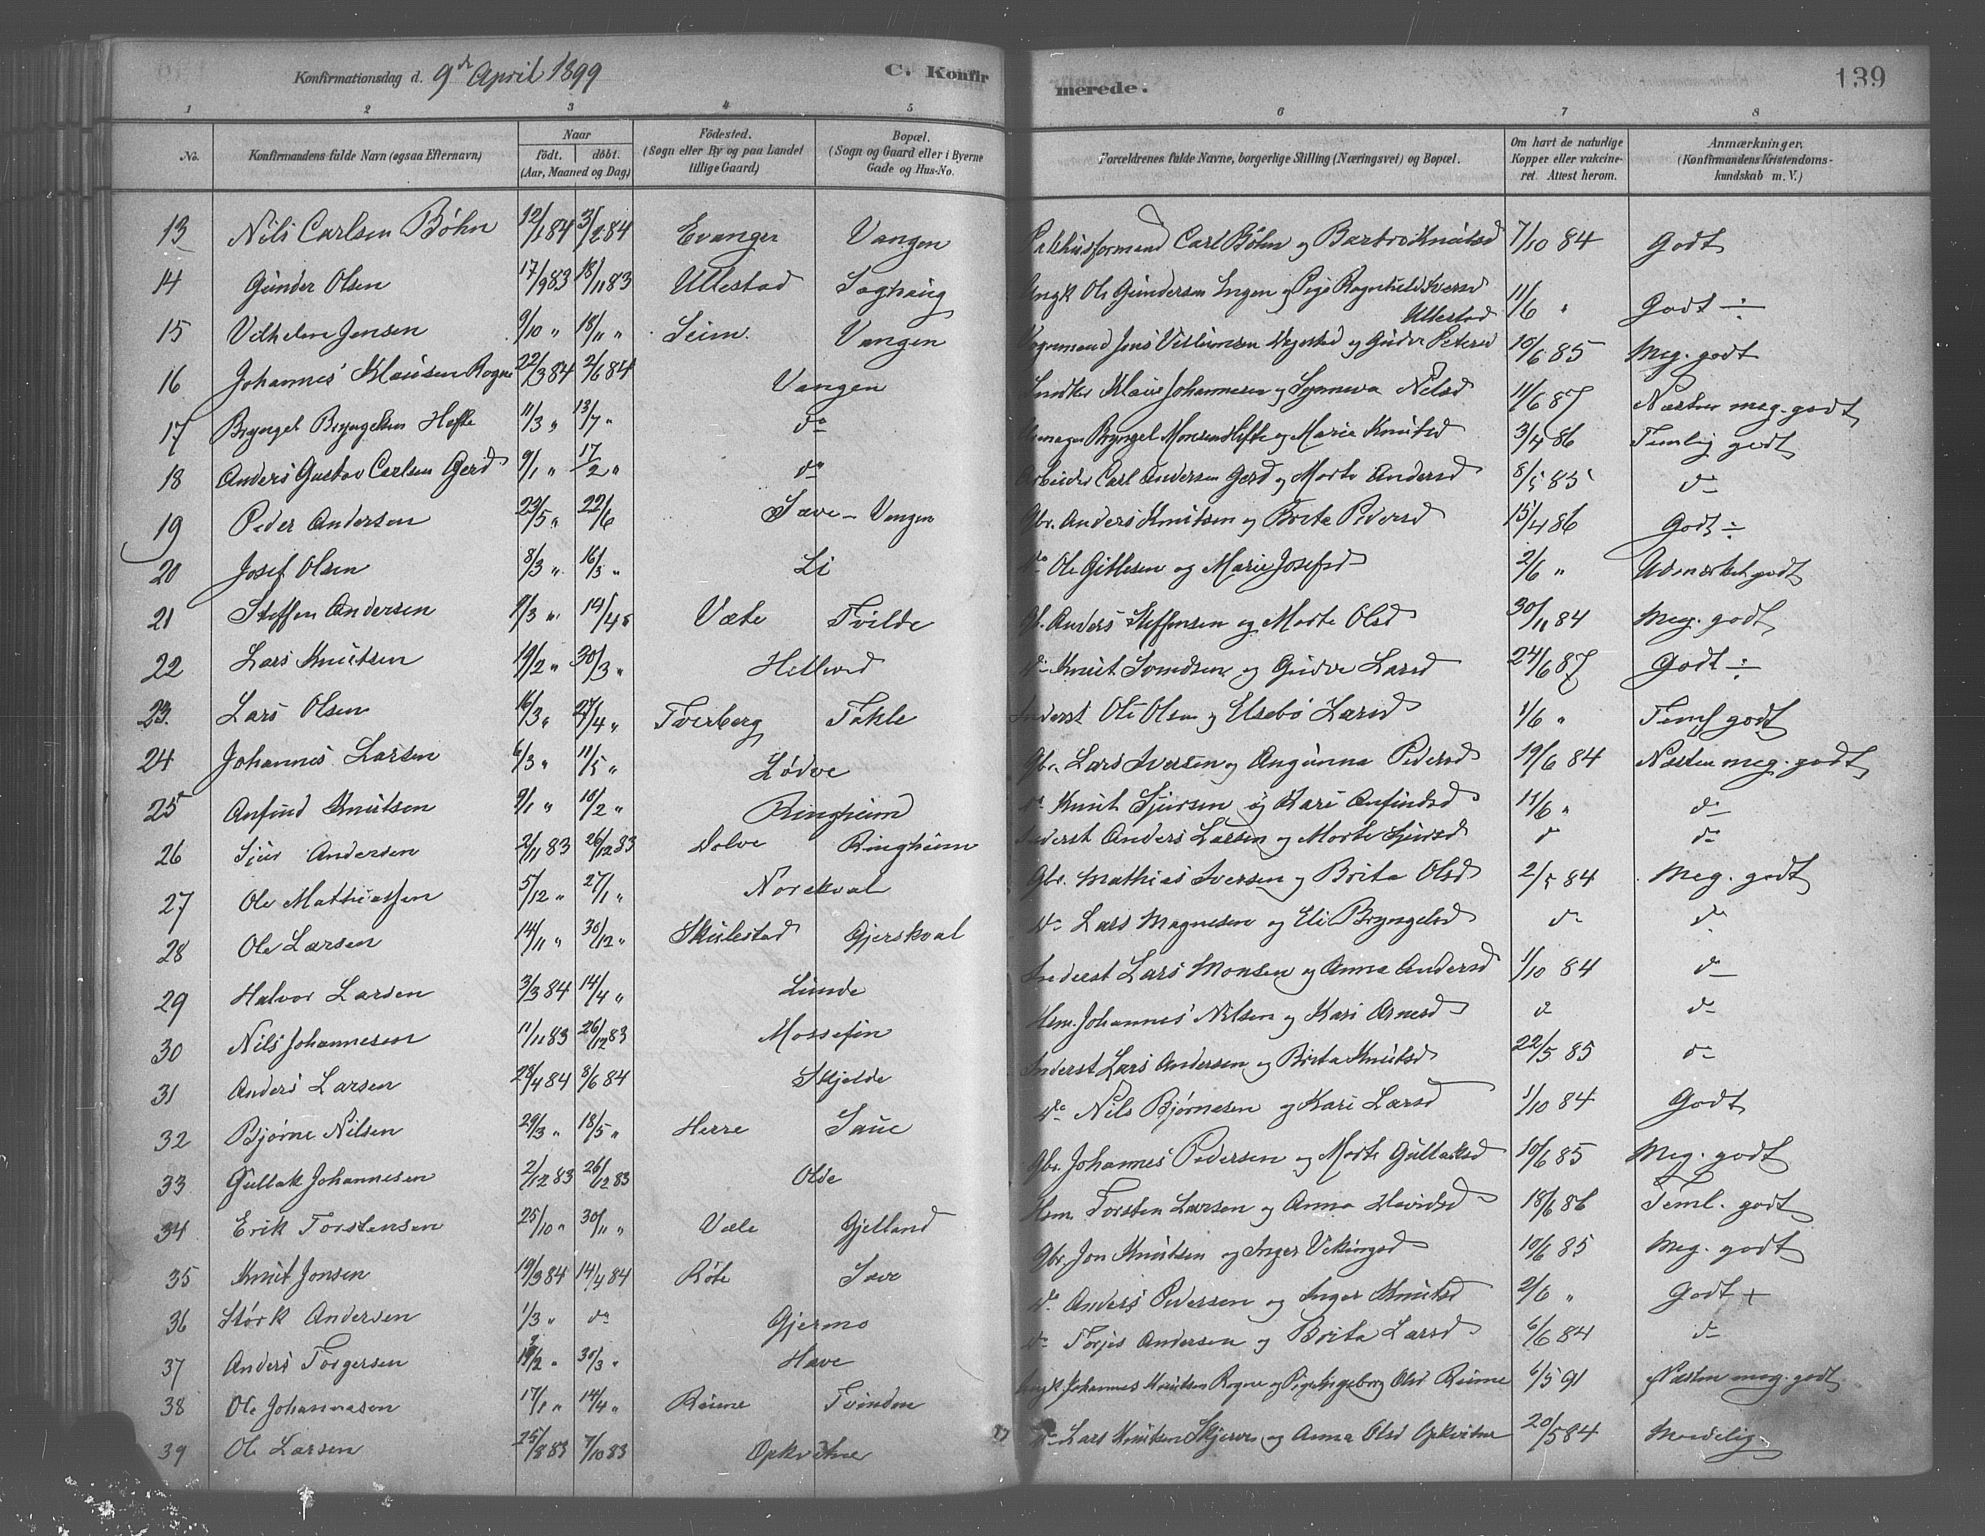 Konfirmationsdag d. 9de April 1899
C. Konfirmerede.
139
1 2 3 4 5 6 7 8
No.
Konfirmandens fulde Navn (ogsaa Efternavn)
Naar
født. døbt.
(Aar, Maaned og Dag)
Födested.
(Sogn eller By og paa Landet
tillige Gaard)
Bopæl.
(Sogn og Gaard eller i Byerne
Gade og Hus-No.
Forældrenes fulde Navne, borgerlige Stilling (Næringsvei) og Bopæl.
Om havt de naturlige
Kopper eller vakcine-
ret. Attest herom.
Anmærkninger.
(Konfirmandens Kristendoms-
kundskab m. V.)
13 Nils Carlsen Bøhn 12/1 84 3/2 84 Evanger Vangen Carl Bøhn og Knutsd 7/10 84 Godt
14 Gunder Olsen 17/9 83 18/11 83 Ullestad Ungk Ole Gundersen og Pige Ragnhild Iversd Ullestad 11/6 " Godt ÷
15 Vilhelm Jensen 9/10 " 18/11 " Seim Vangen Jens og Petersd 10/6 85 Meg. godt
16 Johannes Klausen Rogne 22/3 84 2/6 84 Vangen Klaus Johannesen og Synneva Nilsd 11/6 87 Næsten meg. godt
17 Bryngel Bryngelsen Hefte 11/3 " 13/7 " do Bryngel Monsen Hefte og Marie Knutsd 3/4 86 Temlig godt
18 Anders Gustav Carlsen Gerd 9/1 " 17/2 " do Arbeider Carl Andersen Gerd og Marte Andersd 8/5 85 do
19 Peder Andersen 23/5 " 22/6 Sæve - Vangen Gbr. Anders Knutsen og Brita Pedersd 15/4 86 Godt ÷
20 Josef Olsen 8/3 " 16/5 " Li do Ole Gitlesen og Marie Josefsd 2/6 " Udmærket godt
21 Steffen Andersen 14/4 " Væte Tvilde Gb. Anders Steffensen og Marte Olsd 30/11 84 Meg. godt
22 Lars Knutsen 19/2 " 30/3 " do Knut Svendsen og Gudve Larsd 24/6 87 Godt ÷
23 Lars Olsen 16/3 " 27/4 " Tverberg Takle Inderst Ole Olsen og Elsebø Larsd 1/6 " Teml godt
24 Johannes Larsen 6/3 " 11/5 " Lødve Gbr. Lars Iversen og Angunna Pedersd 19/6 84 Næsten meg. godt
25 Anfind Knutsen 9/1 " 10/2 " Ringheim do Knut Sjursen og Kari Anfindsd 11/6 " do
26 Sjur Andersen 2/11 83 26/12 83 Dolve Ringheim Inderst Anders Larsen og Marte Sjursd do do
27 Ole Mathiassen 5/12 " 27/1 " Norekval Gbr. Mathias Iversen og Brita Olsd 2/5 84 Meg. godt
28 Ole Larsen 14/11 " 30/12 " Skulestad Gjerskval do Lars Magnesen og Eli Bryngelsd do do
29 Halvor Larsen 3/3 84 14/4 " Lunde Inderst Lars Monsen og Anna Andersd 1/10 84 do
30 Nils Johannesen 11/11 83 26/12 83 Mossefin Hsm. Johannes Nilsen og Kari Arnesd do do
31 Anders Larsen 28/4 84 8/6 84 Skjelde Inderst Lars Andersen og Brita Knutsd 22/5 85 do
32 Bjørne Nilsen 29/3 " 18/5 " Herre Saue do Nils Bjørnesen og Kari Larsd 1/10 84 Godt
33 Gullak Johannesen 2/12 83 26/12 83 Olde Gbr. Johannes Pedersen og Marte Gullaksd 10/6 85 Meg. godt
34 Erik Torstensen 25/10 " 30/11 " Væle Gjelland Hsm Torsten Larsen og Anna Davidsd 18/6 86 Teml. godt
35 Knut Jonsen 19/3 84 14/4 84 Røte Sæve Gbr. Jon Knutsen og Inger Vikingsd 10/6 85 Meg. godt
36 Størk Andersen 1/3 " do Gjermo do Anders Pedersen og Inger Knutsd 2/6 " Godt +
37 Anders Torgersen 19/2 " 30/3 " Hæve do Torjes Andersen og Brita Larsd 6/6 84 do
38 Ole Johannesen 17/1 " 14/4 " Reime Tvinden Ungk Johannes Knutsen Rogne og Pige Ingeborg Olsd Reime 6/5 91 Næsten meg. godt
39 Ole Larsen 25/8 83 7/10 83 Opkvitne do Lars Knutsen Skjerve og Anna Olsd Opkvitne 20/5 84 Maadelig